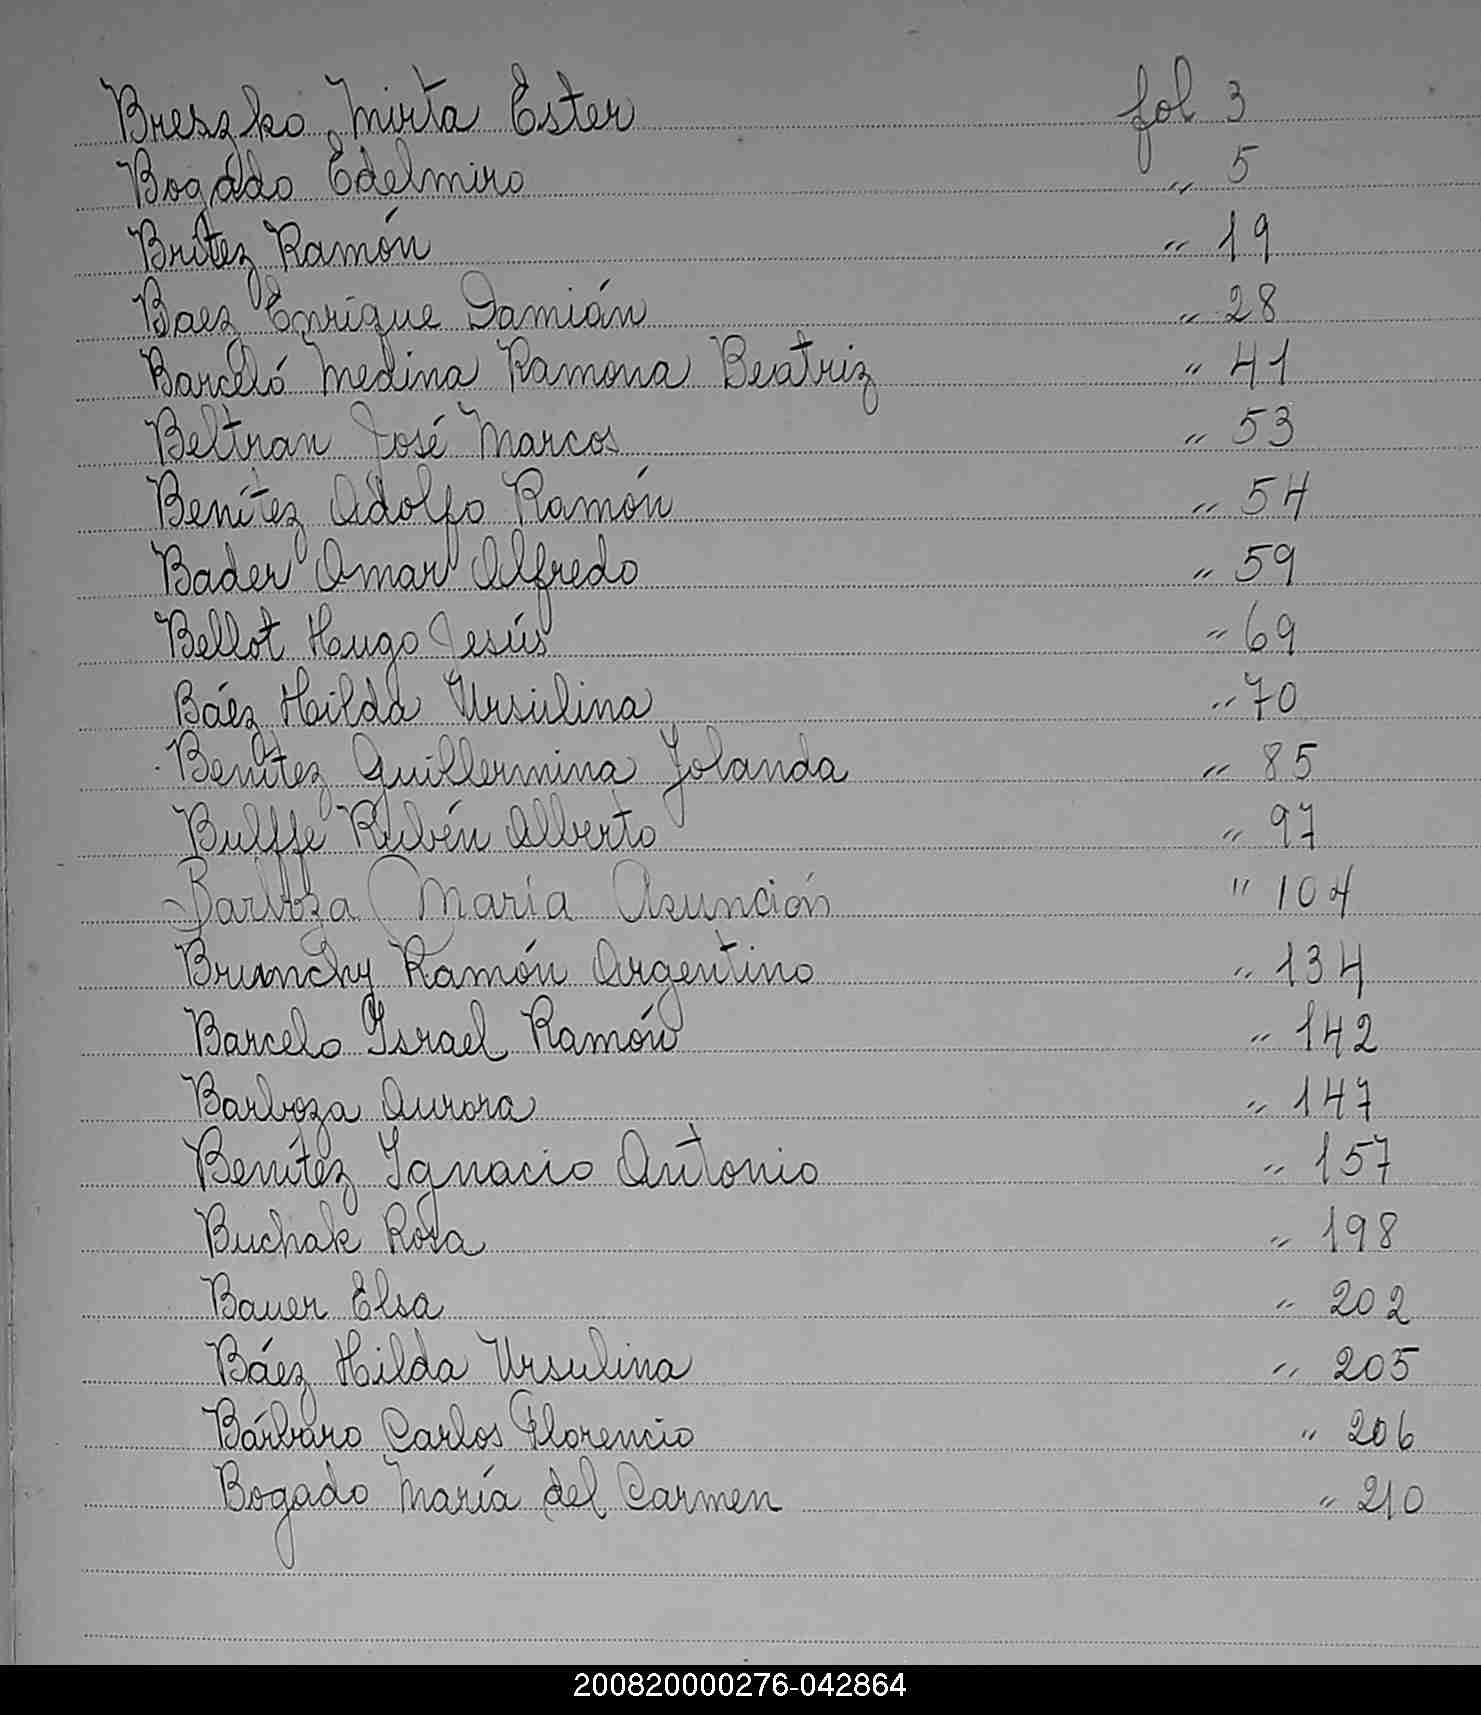 Breszko Mirta Ester fol 3
Bogado Edelmiro " 5
Brítez Ramón " 19
Baez Enrique Damián " 28
Barceló Medina Ramona Beatriz " 41
Beltran José Marcos " 53
Benítez Adolfo Ramón " 54
Bader Omar Alfredo " 59
Bellot Hugo Jesús " 69
Báez Hilda Ursulina " 70
Benítez Guillermina Yolanda " 85
Bulffe Rubén Alberto " 97
Barboza María Asunción " 104
Brunchy Ramón Argentino " 134
Barcelo Israel Ramón " 142
Barboza Aurora " 147
Benítez Ignacio Antonio " 157
Buchak Rosa " 198
Bauer Elsa " 202
Báez Hilda Ursulina " 205
Bárbaro Carlos Florencio " 206
Bogado María del Carmen " 210
200820000276-042864